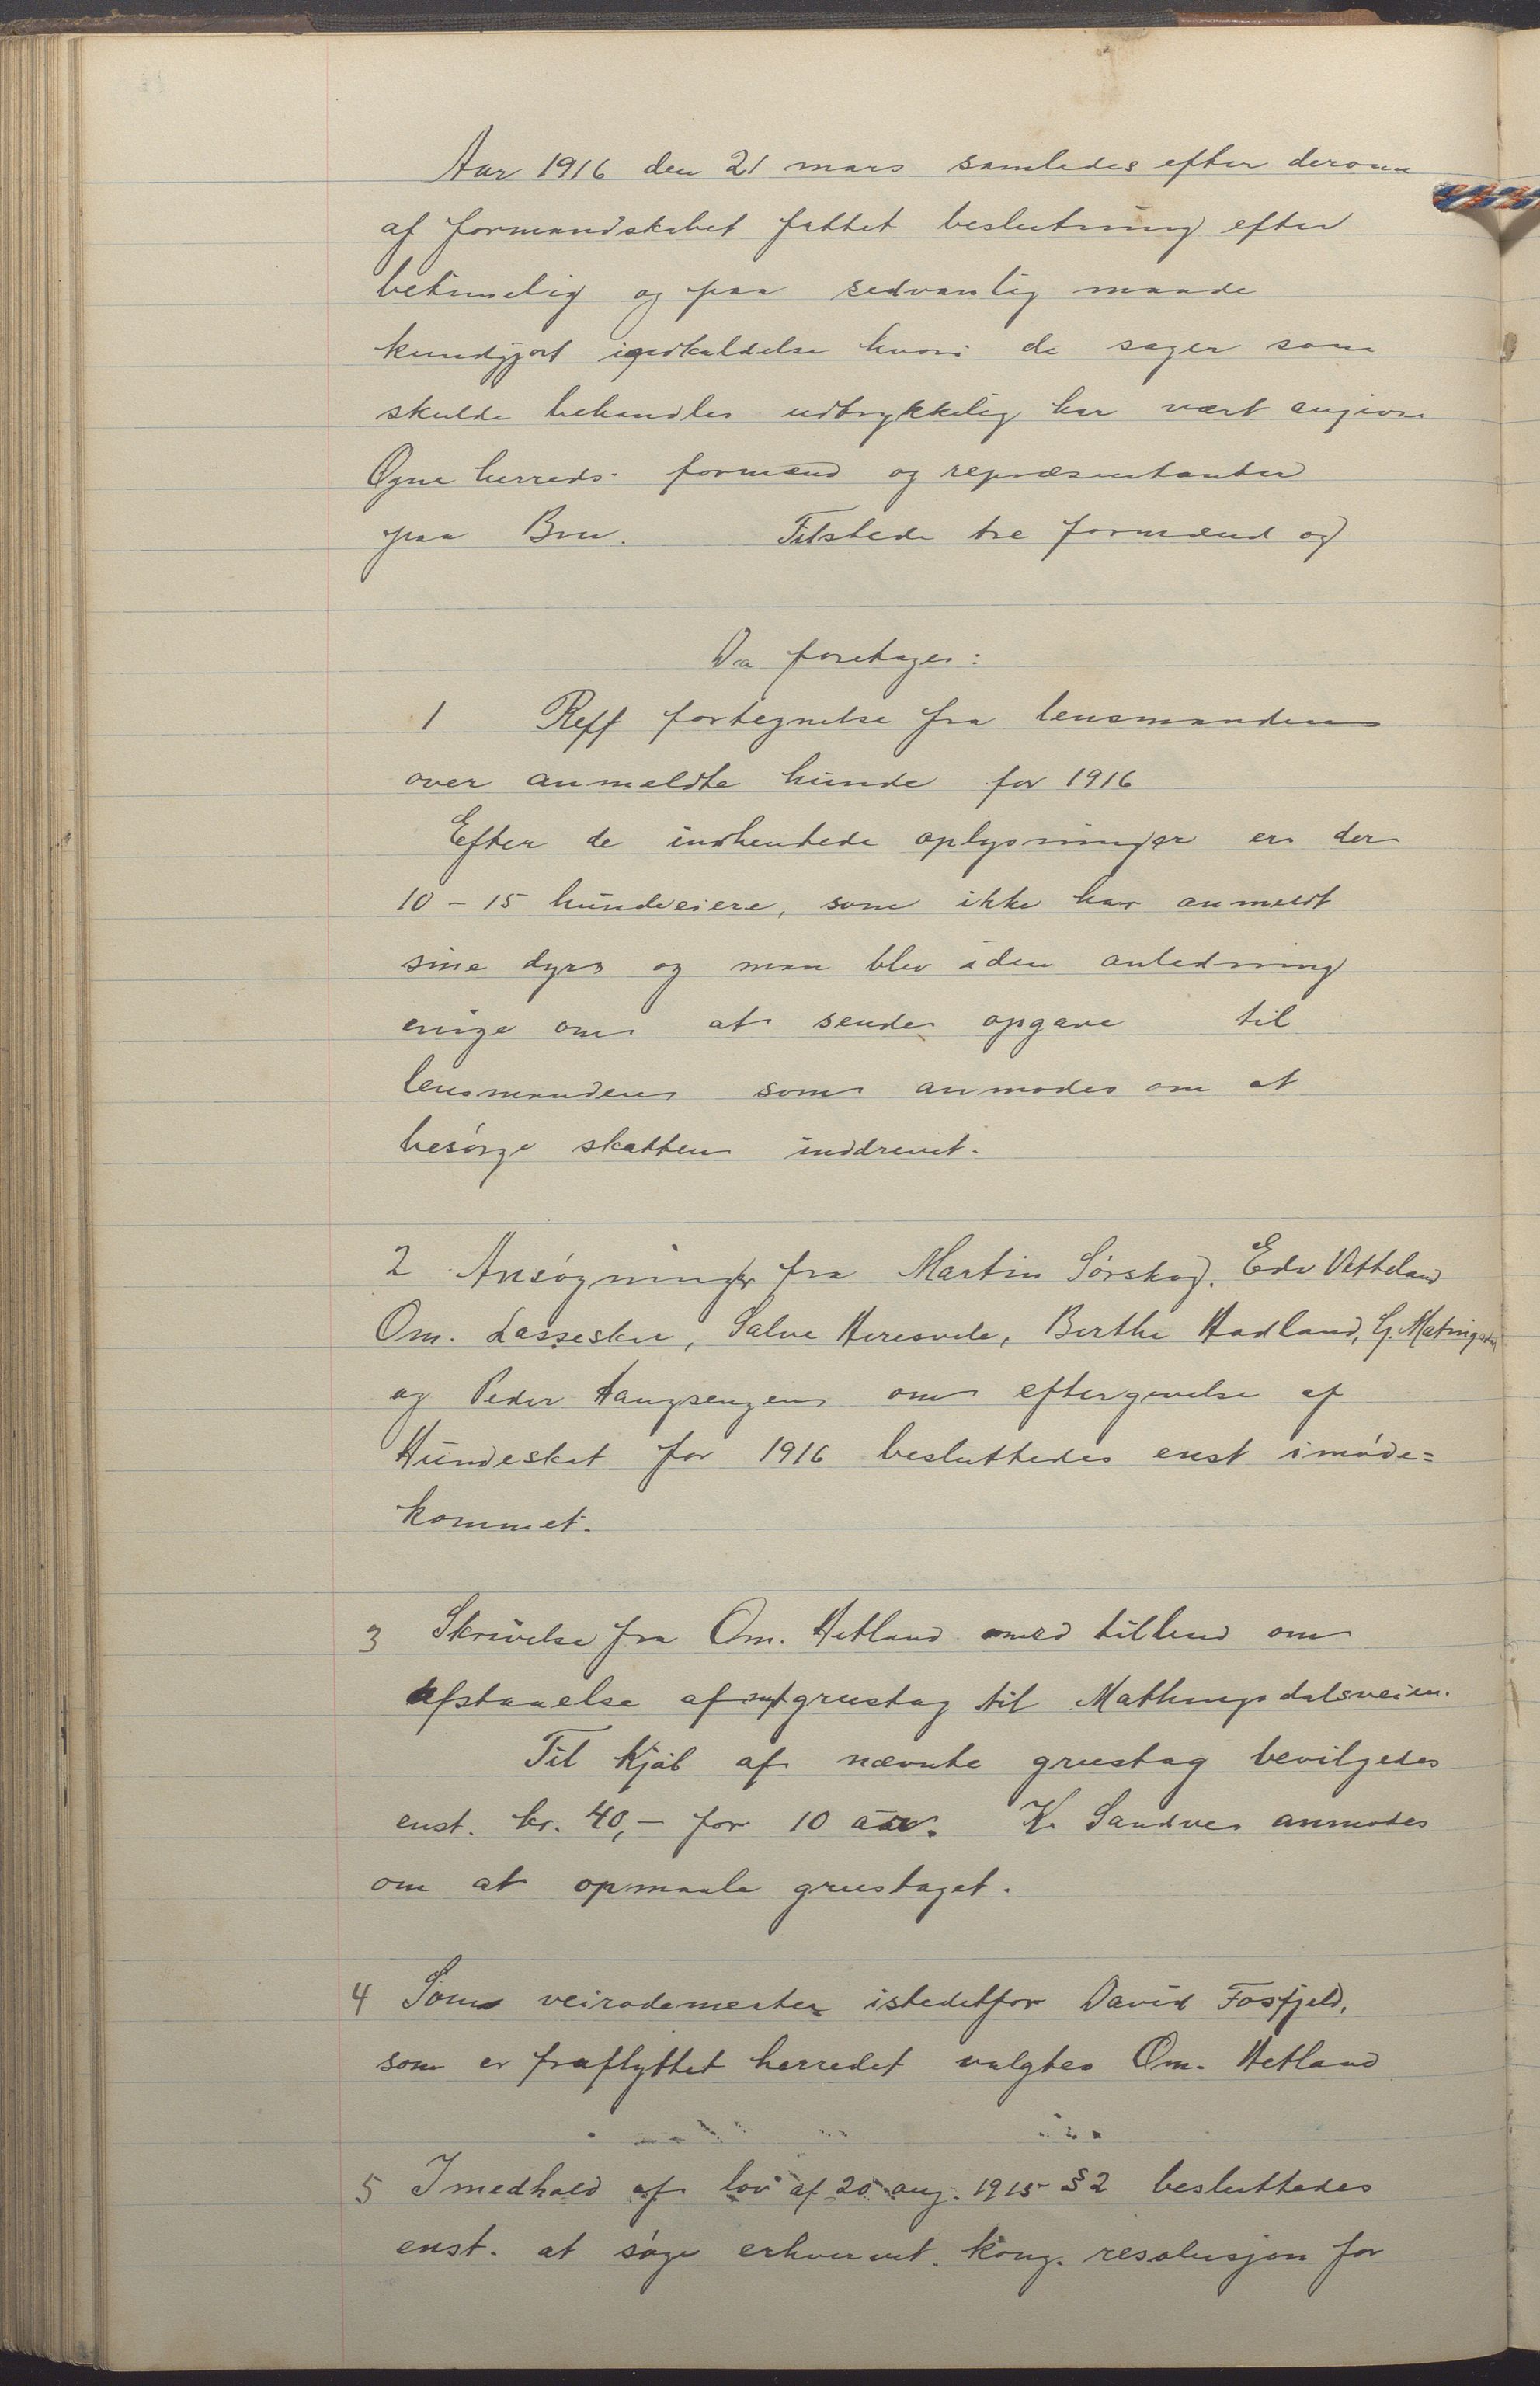 Aar 1916 den 21 mars samledes efter derom
af formandskabet fattet beslutning efter
betimelig og paa sedvanlig maade
kundgjort indkaldelse hvori de sager som
skulde behandles udtrykkelig har vært angivne
Ogne herreds formænd og repræsentanter
paa Bru. Tilstede tre formænd og
Da foretages:
1 Reff fortegnelse fra lensmanden
over anmeldte hunde for 1916
Efter de indhentede oplysninger er der
10 - 15 hundeeiere, som ikke har anmeldt
sine dyrs og man blev iden anledning
enige om at sende opgave til
lensmanden som anmodes om at
besørge skatten inddrevet.
2 Ansøgninger fra Martin Sørskog. Edv Vetteland
Om. Lasseskee, Salve Heresvele, Berthe Hadland, G. Matingsdal
og Peder Haugsengen om eftergivelse af
Hundeskat for 1916 besluttedes enst imøde=
kommet.
3 Skrivelse fra Om. Hetland med tilbud om
afstaaelse af grustag til Mathingsdalsveien.
Til Kjøb af nævnte grustag bevilgedes
enst. kr. 40,- for 10 aar. K. Sandve anmodes
om at opmaale grustaget.
4 Som veirodemester istedetfor David Fosfjeld,
som er fraflyttet herredet valgtes Om. Hetland
5 Imedhold af lov af 20 aug. 1915 § 2 besluttedes
enst. at søge erhvervet. kong. resolusjon for